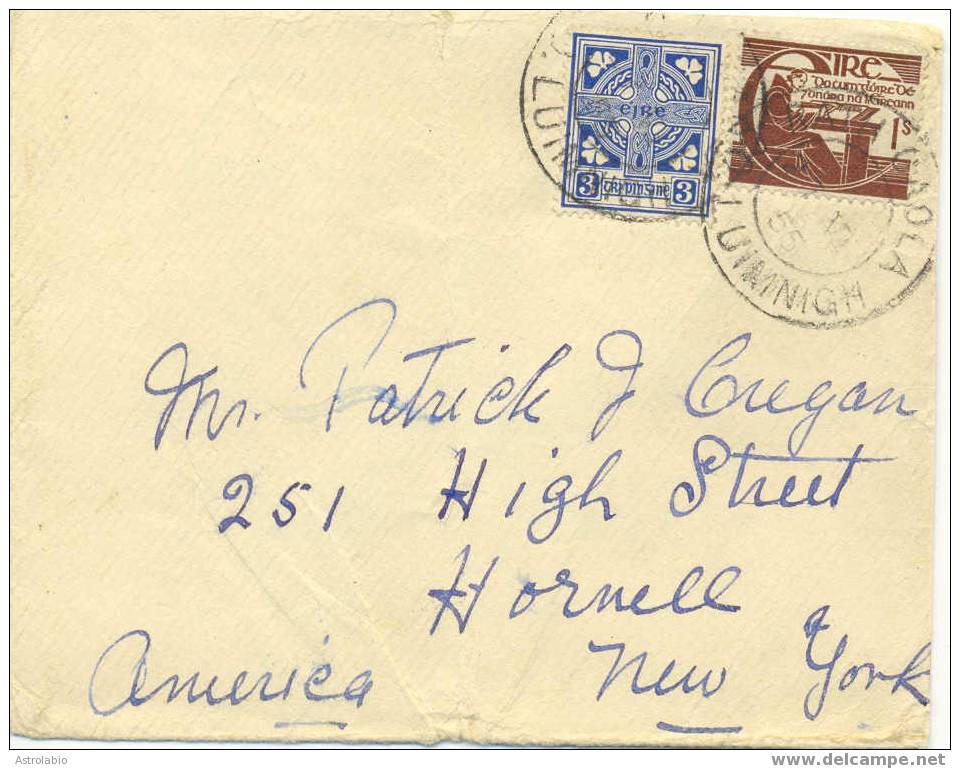 ÉIRE
3 TRÍ PINGINE 3
ÉIRE
Do cum glóire Dé
7 onóra na hÉireann
1s
LUIMNIGH
55
LUIMNIGH
Mr. Patrick J Cregan
251 High Street
Hornell
New York
America
Astrolabio
www.delcampe.net